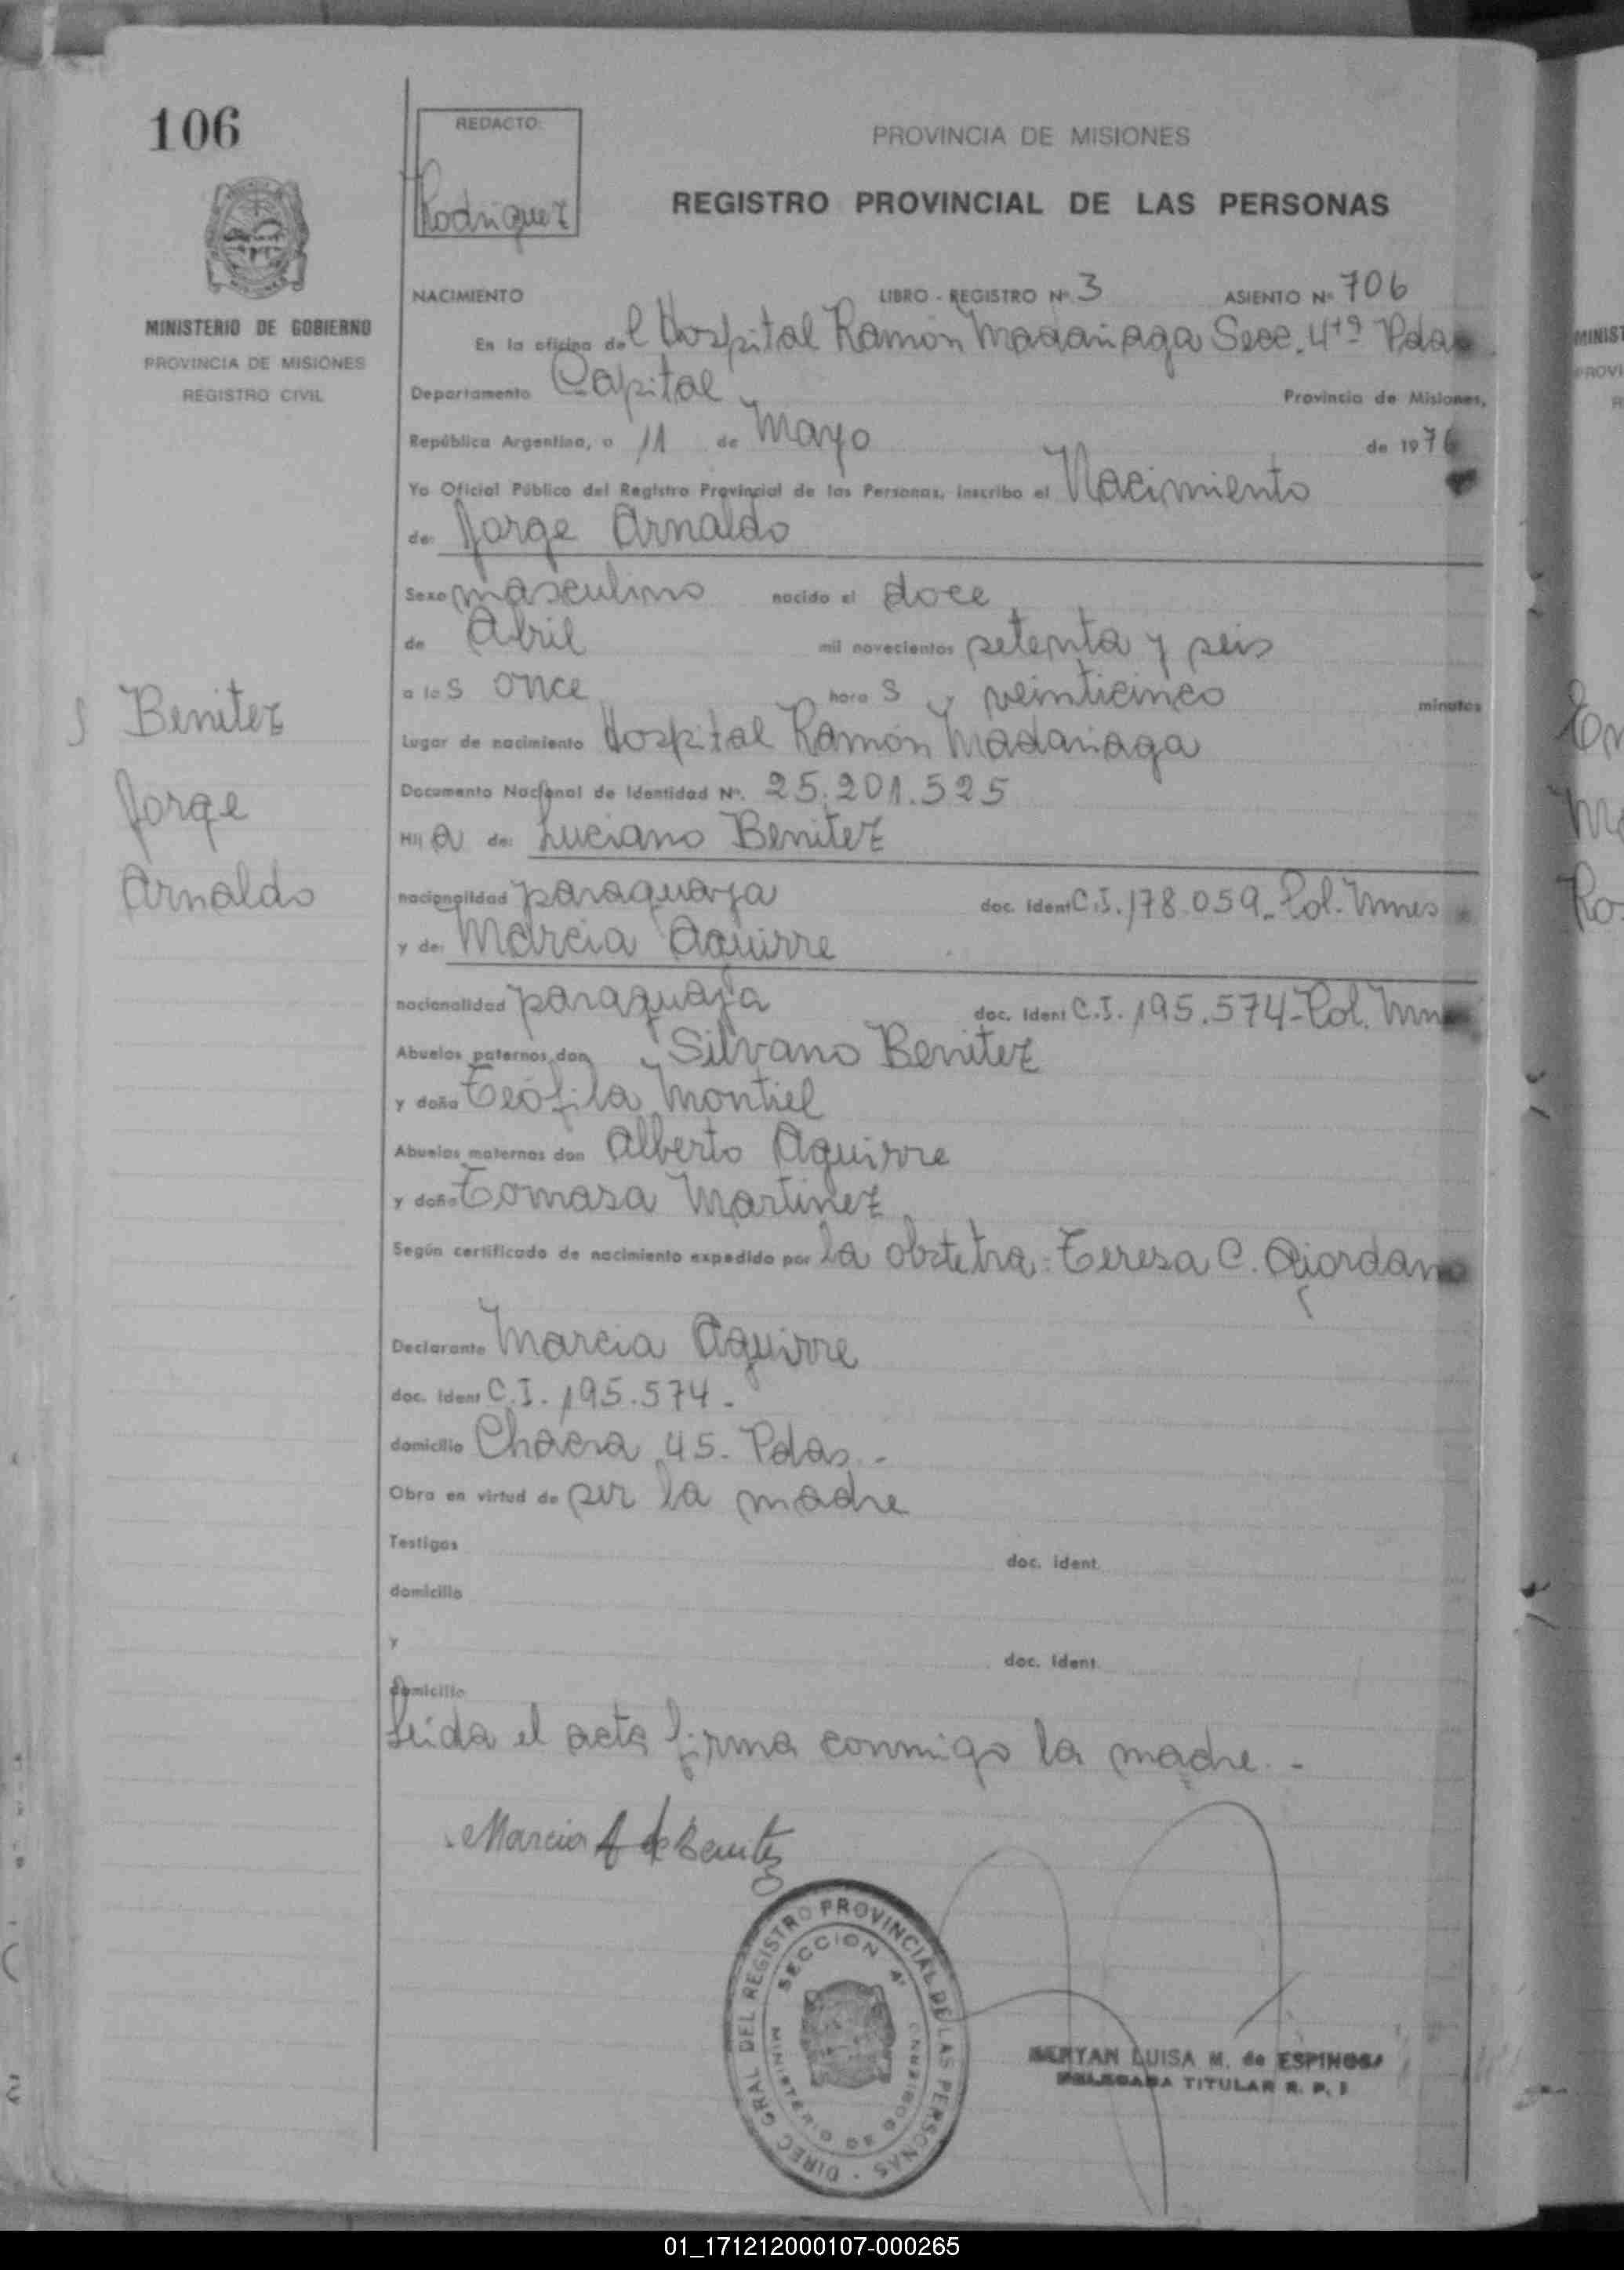 106
REDACTO:
Rodriguez
PROVINCIA DE MISIONES
REGISTRO PROVINCIAL DE LAS PERSONAS
MINISTERIO DE GOBIERNO
PROVINCIA DE MISIONES
REGISTRO CIVIL
NACIMIENTO LIBRO - REGISTRO Nº 3 ASIENTO Nº 706
En la oficina del Hospital Ramón Madariaga Secc. 4ta Pdas
Departamento Capital Provincia de Misiones,
República Argentina, a 11 de Mayo de 1976
Yo Oficial Público del Registro Provincial de las Personas, inscribo el Nacimiento
de: Jorge Arnaldo
Sexo masculino nacido el doce
de Abril mil novecientos setenta y seis
a las once horas y veinticinco minutos
Benitez
Jorge
Arnaldo
Lugar de nacimiento Hospital Ramón Madariaga
Documento Nacional de Identidad Nº. 25.201.525
Hijo de: Luciano Benitez
nacionalidad paraguaya doc. ident C.I. 178.059. Pol. Mnes
y de: Marcia Aguirre
nacionalidad paraguaya doc. ident C.I. 195.574-Pol.
Abuelos paternos don Silvano Benitez
y doña Teófila Montiel
Abuelos maternos don Alberto Aguirre
y doña Tomasa Martinez
Según certificado de nacimiento expedido por la obstetra: Teresa C. Giordano
Declarante Marcia Aguirre
doc. ident C.I. 195.574.-
domicilio Chacra 45. Pdas.-
Obra en virtud de ser la madre
Testigos doc. ident.
domicilio
y doc. ident.
domicilio
Leida el acta firma conmigo la madre.-
Marcia A de Benitez
DIREC. GRAL DEL REGISTRO PROVINCIAL DE LAS PERSONAS
SECCION 4ª
MINISTERIO DE GOBIERNO
LUISA M. de ESPINOSA
DELEGADA TITULAR R. P. P
MINIST
PROVI
R
01_171212000107-000265